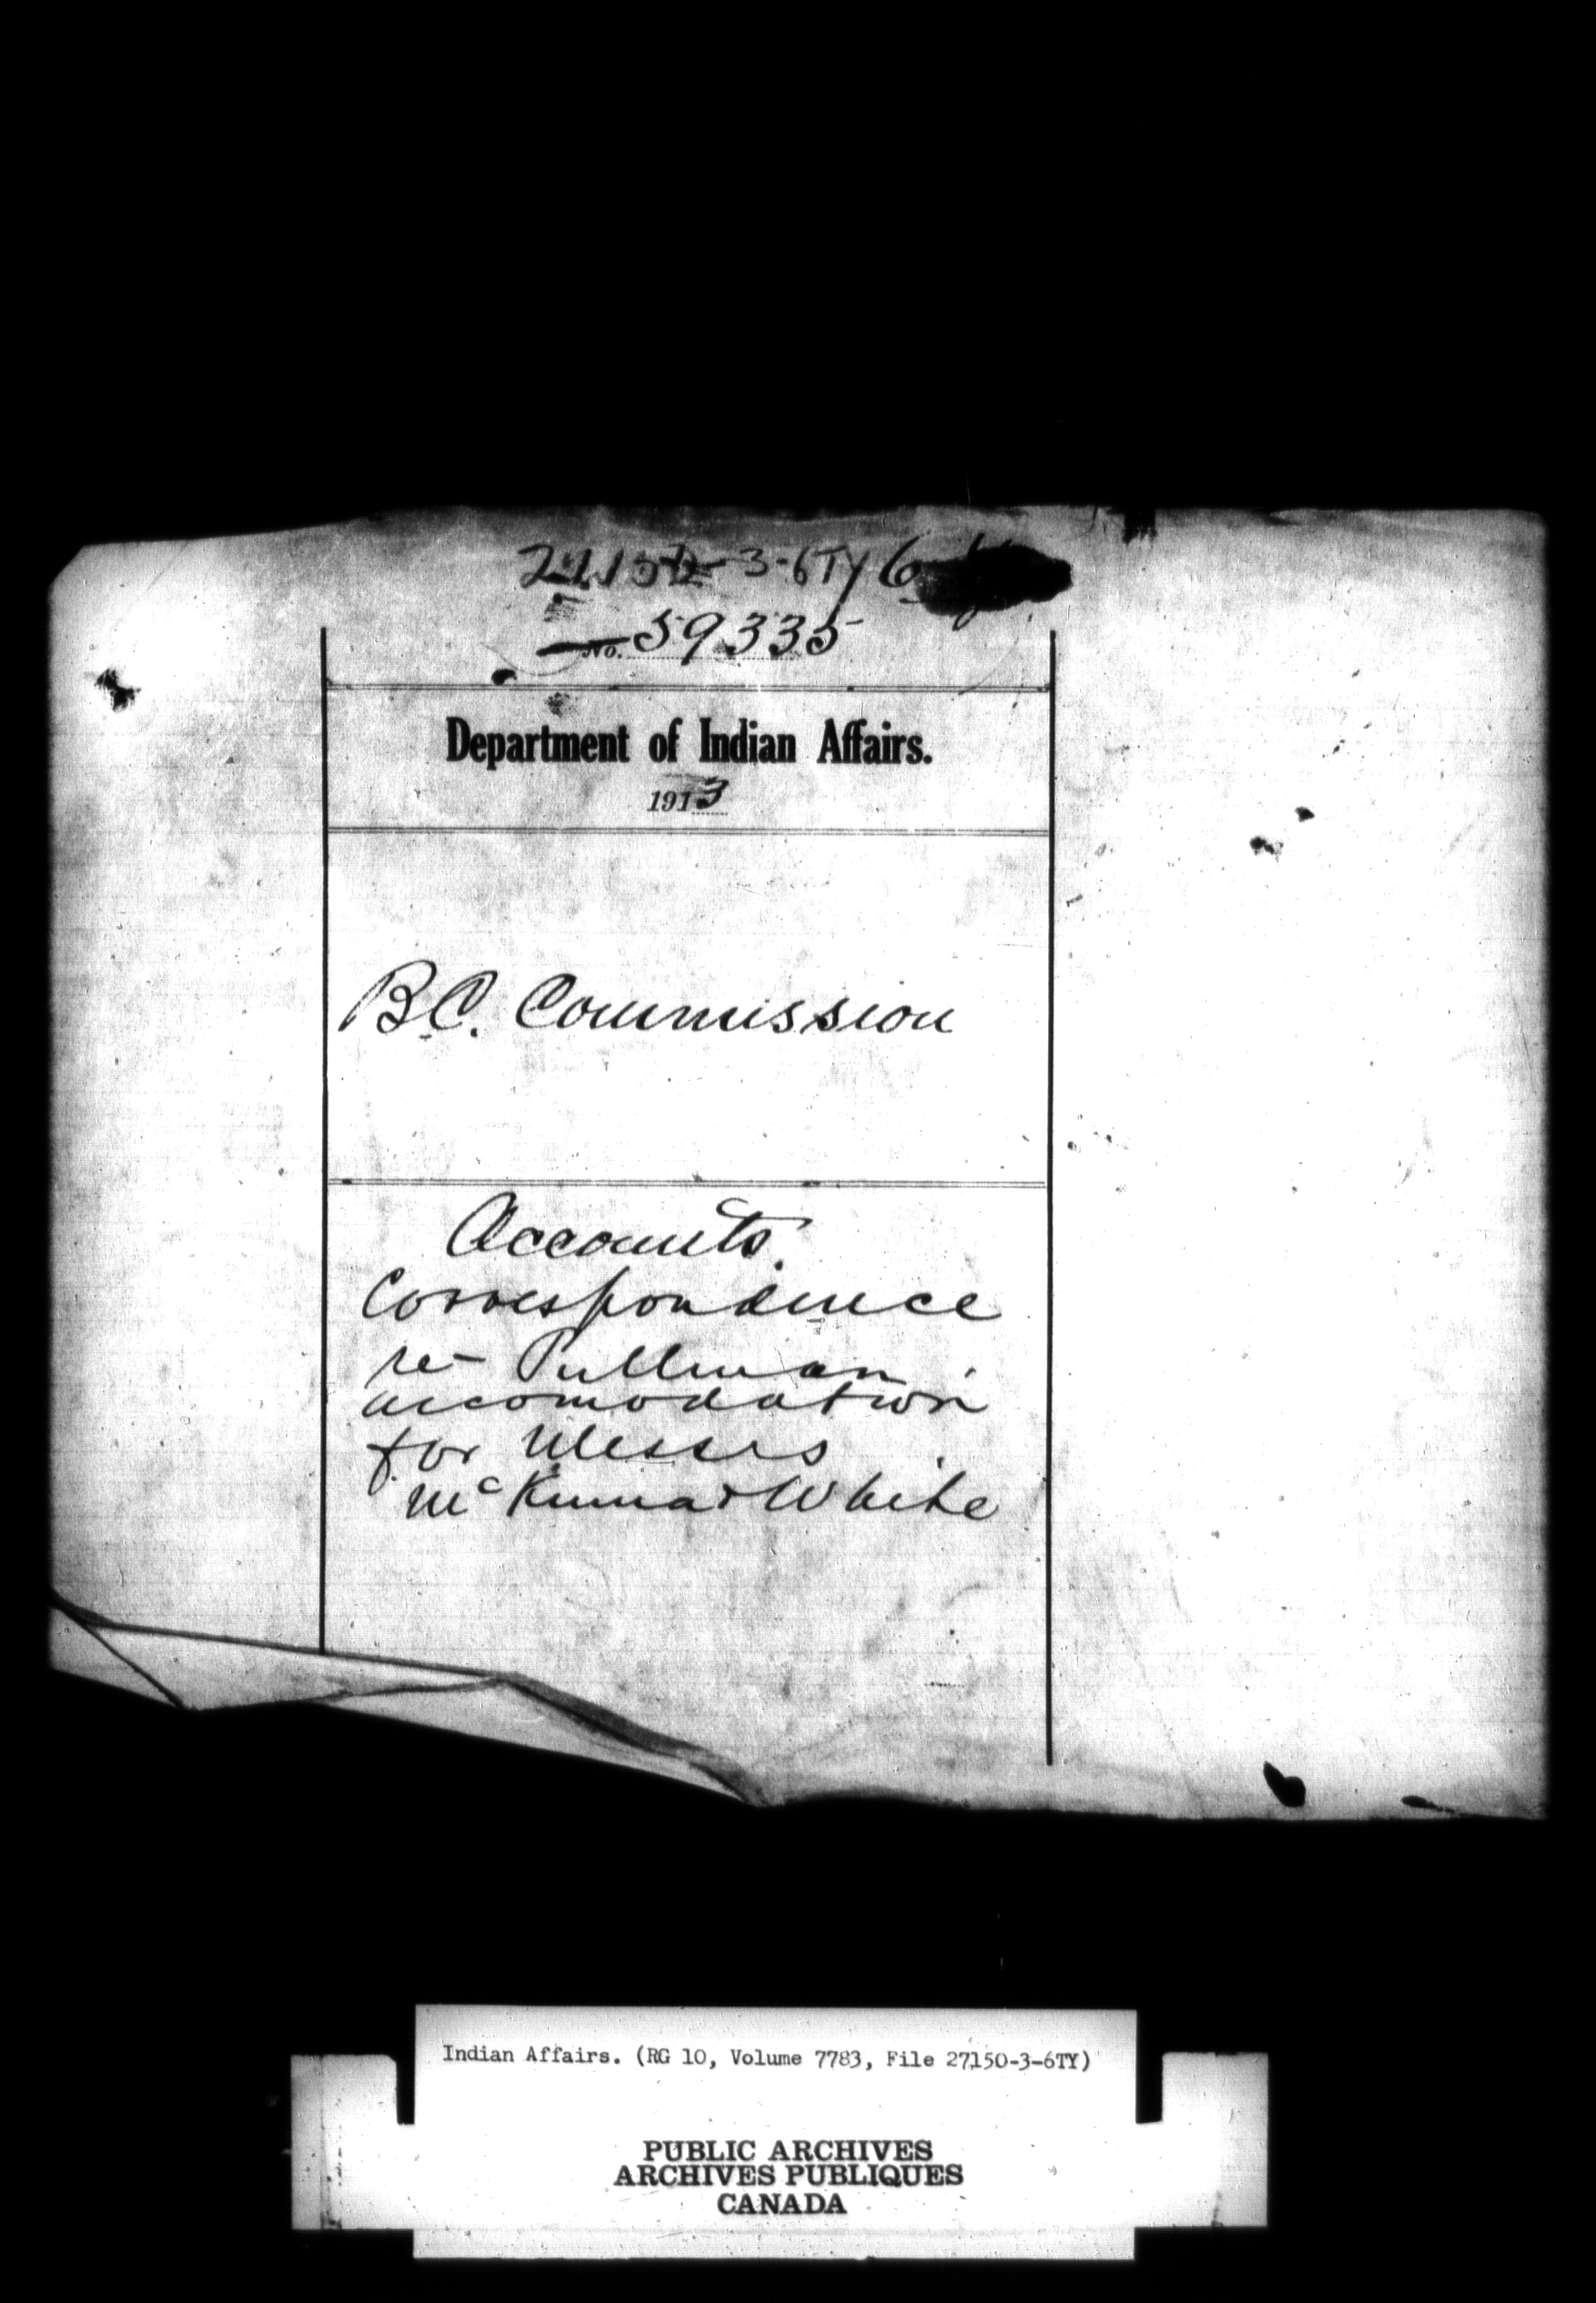 27150-3-6TY 6
No. 59335
Department of Indian Affairs.
1913
B.C. Commission
Accounts.
Correspondence
re- Pullman
accomodation
for Messrs
McKenna & White
Indian Affairs. (RG 10, Volume 7783, File 27150-3-6TY)
PUBLIC ARCHIVES
ARCHIVES PUBLIQUES
CANADA